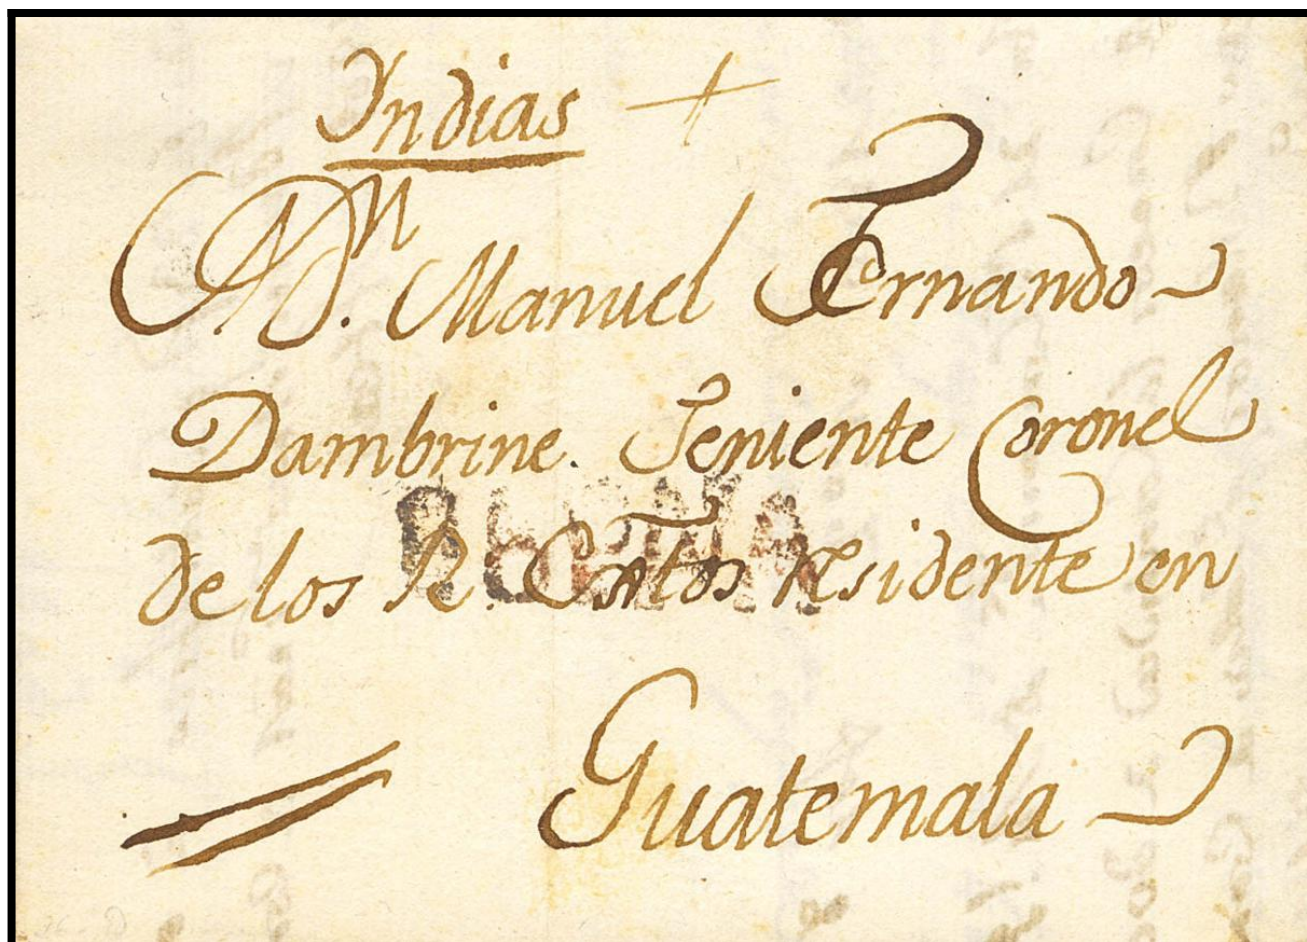 Yndias +
A Dn. Manuel Fernando
Dambrine. Teniente Coronel
de los R. Extos residente en
Guatemala